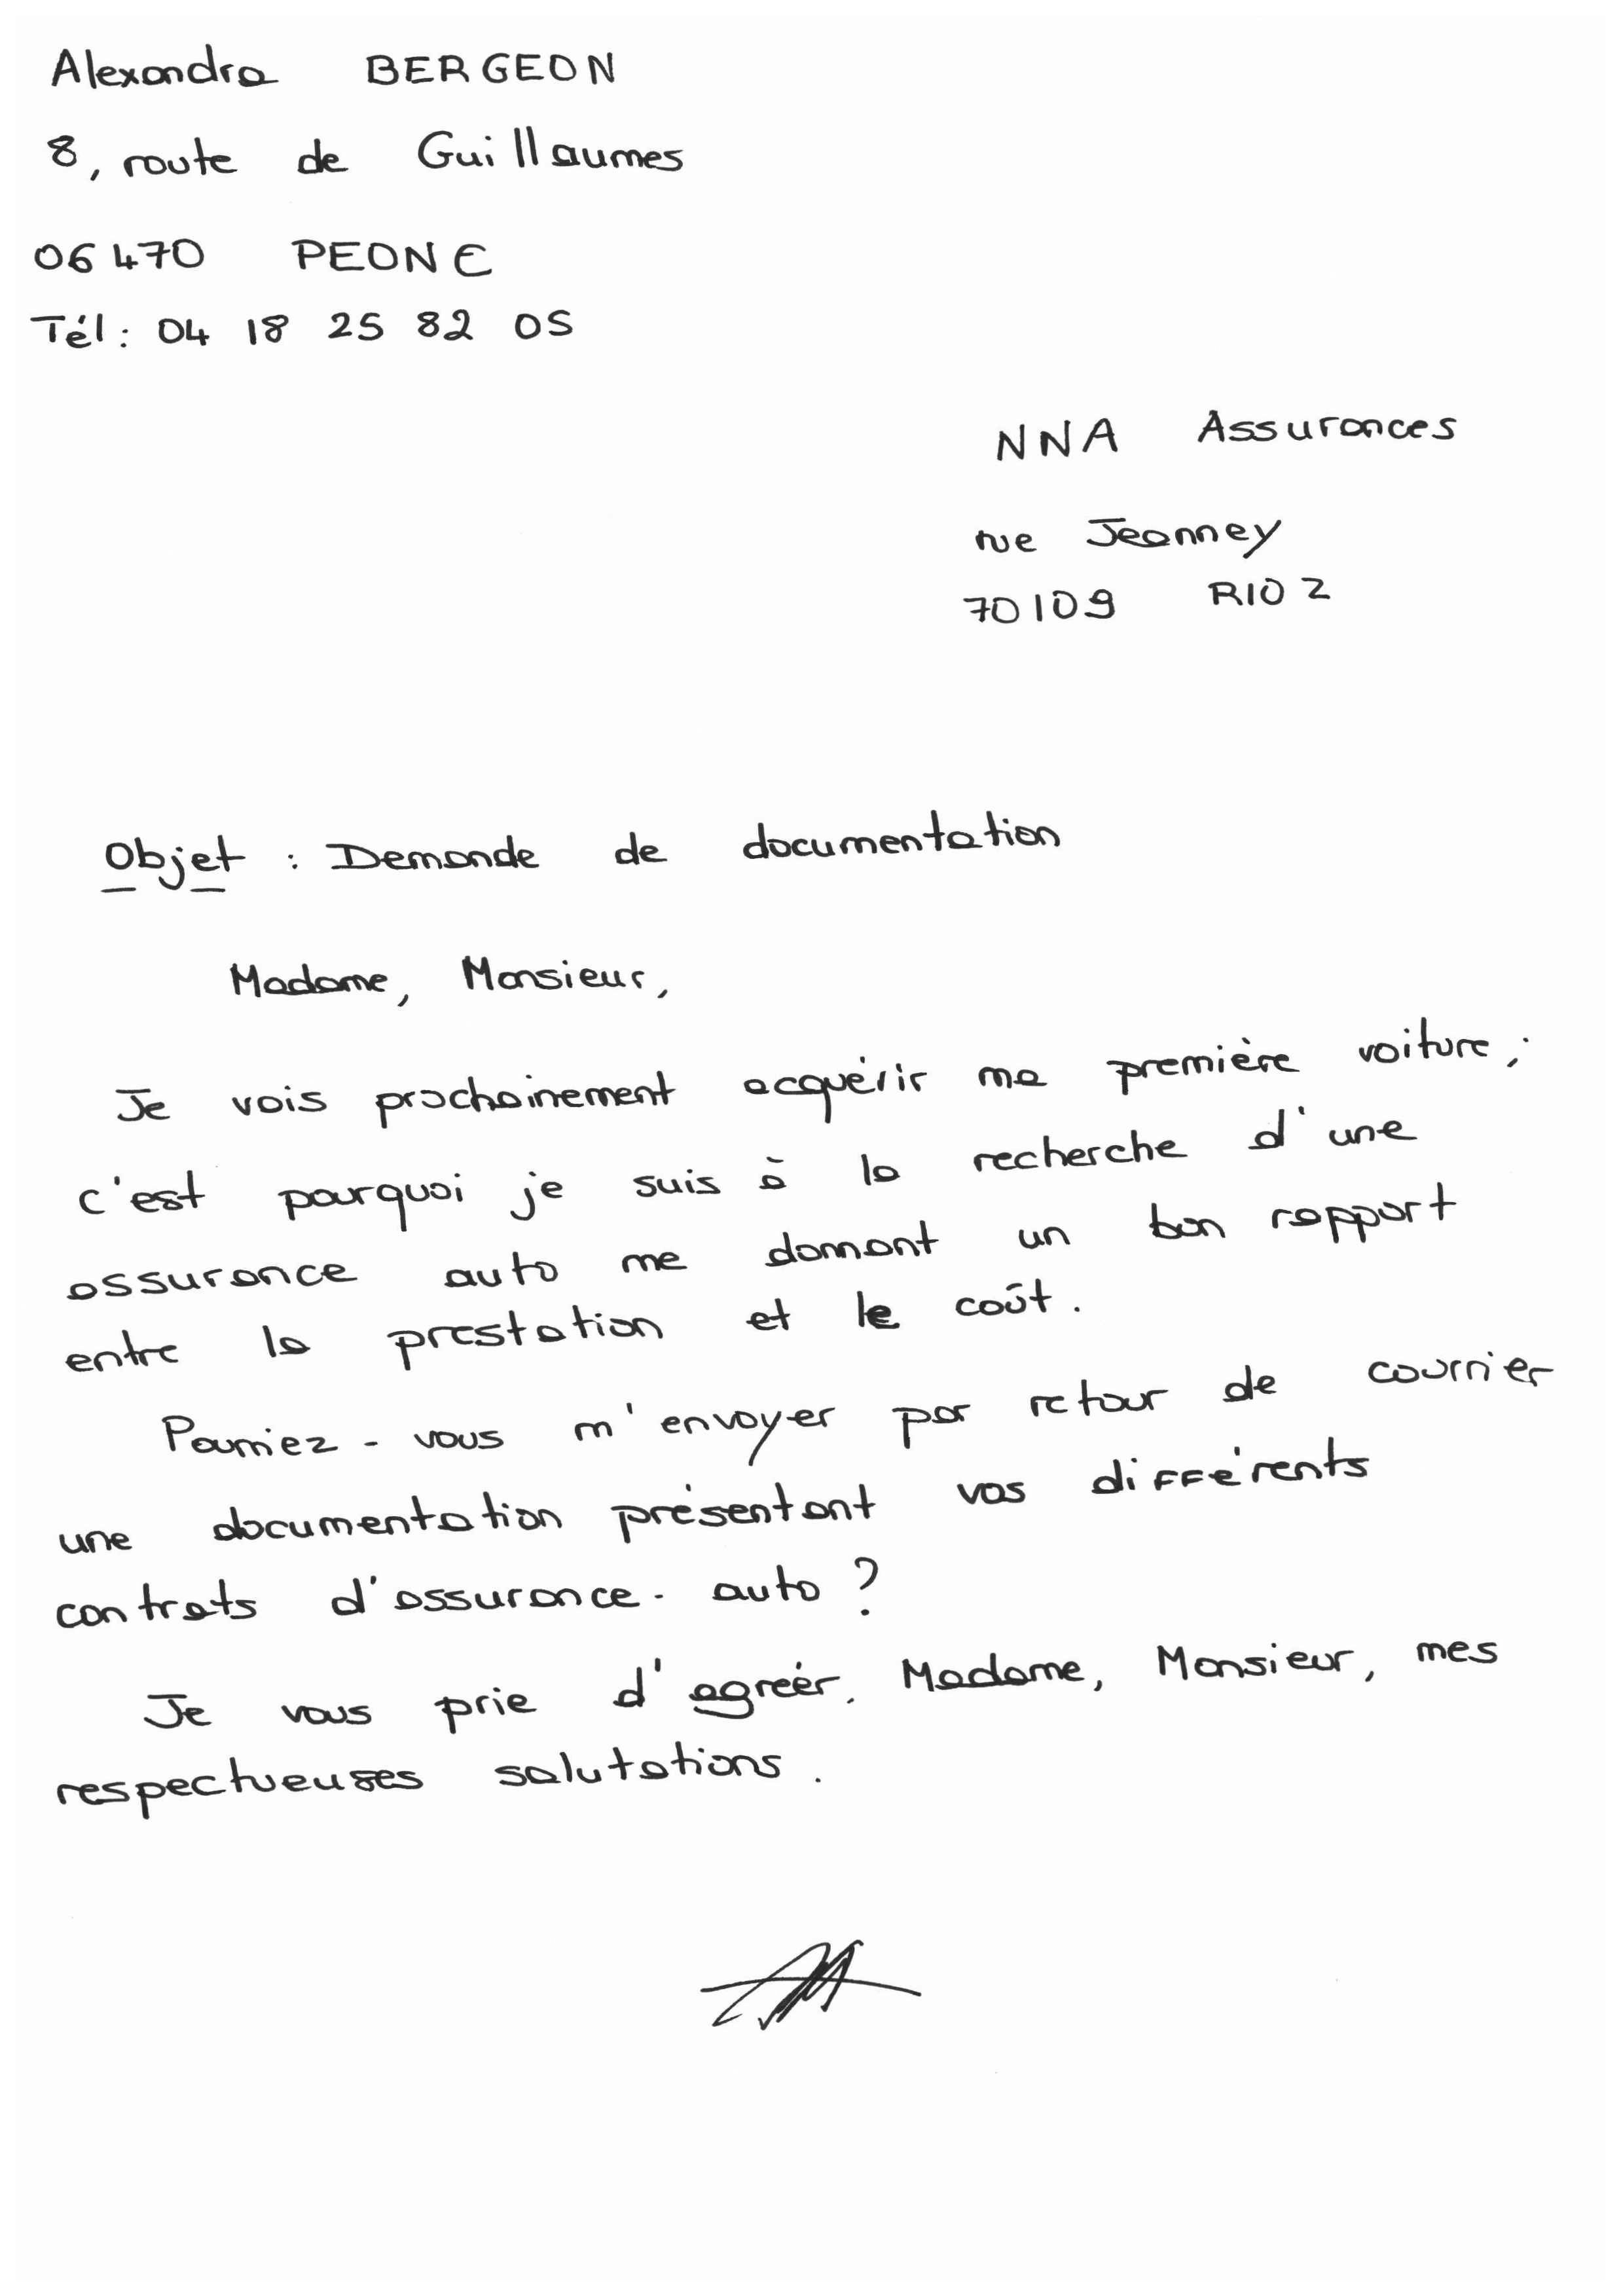 Alexandra BERGEON
8, route de Guillaumes
06470 PEONE
Tél : 04 18 25 82 05
NNA Assurances
rue Jeanney
70109 RIOZ
Objet : Demande de documentation
Madame, Monsieur,
Je vais prochainement acquérir ma première voiture ;
c'est pourquoi je suis à la recherche d'une
assurance auto me donnant un bon rapport
entre la prestation et le coût.
Pourriez-vous m'envoyer par retour de courrier
une documentation présentant vos différents
contrats d'assurance-auto ?
Je vous prie d'agréér, Madame, Monsieur, mes
respectueuses salutations.